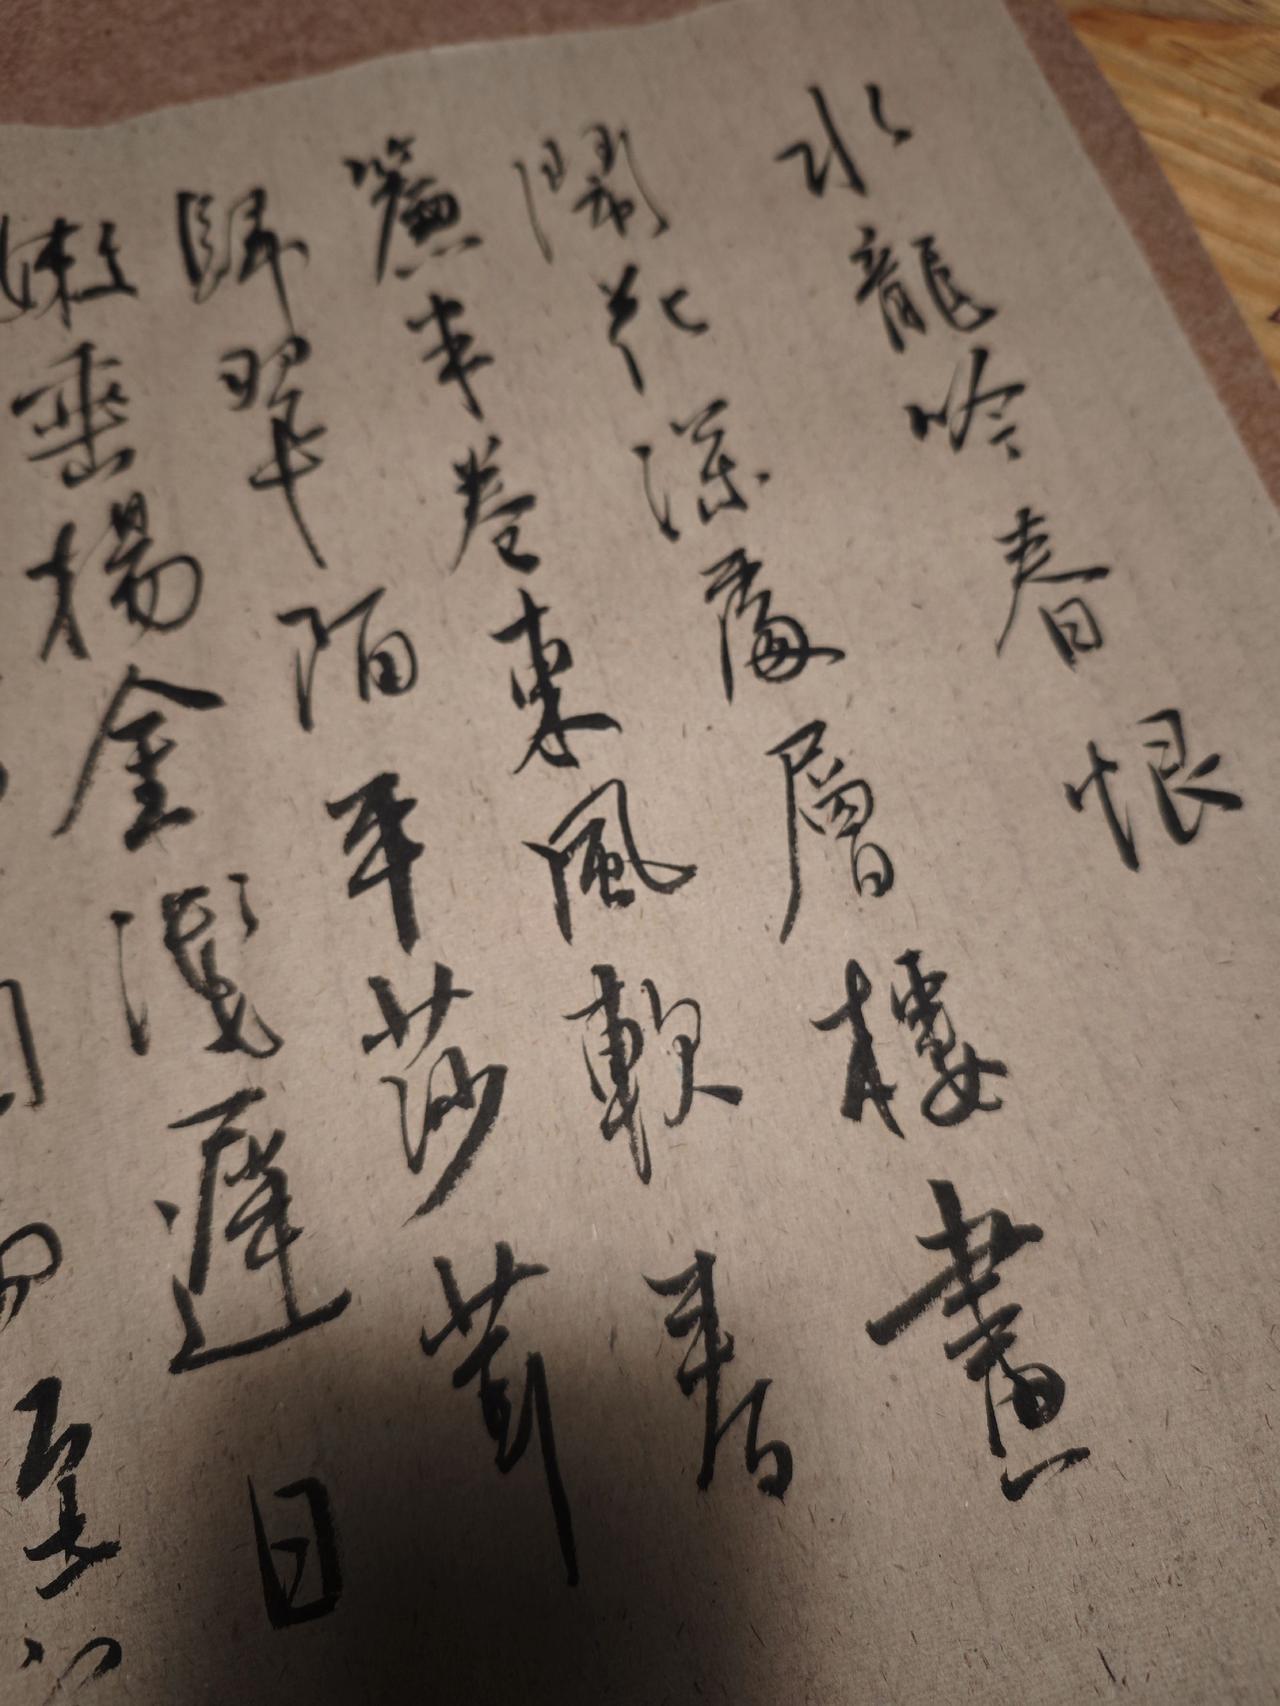 水龍吟春恨
鬧花深處層樓畫
簾半卷東風軟春
歸翠陌平莎茸
嫩垂楊金淺遲日